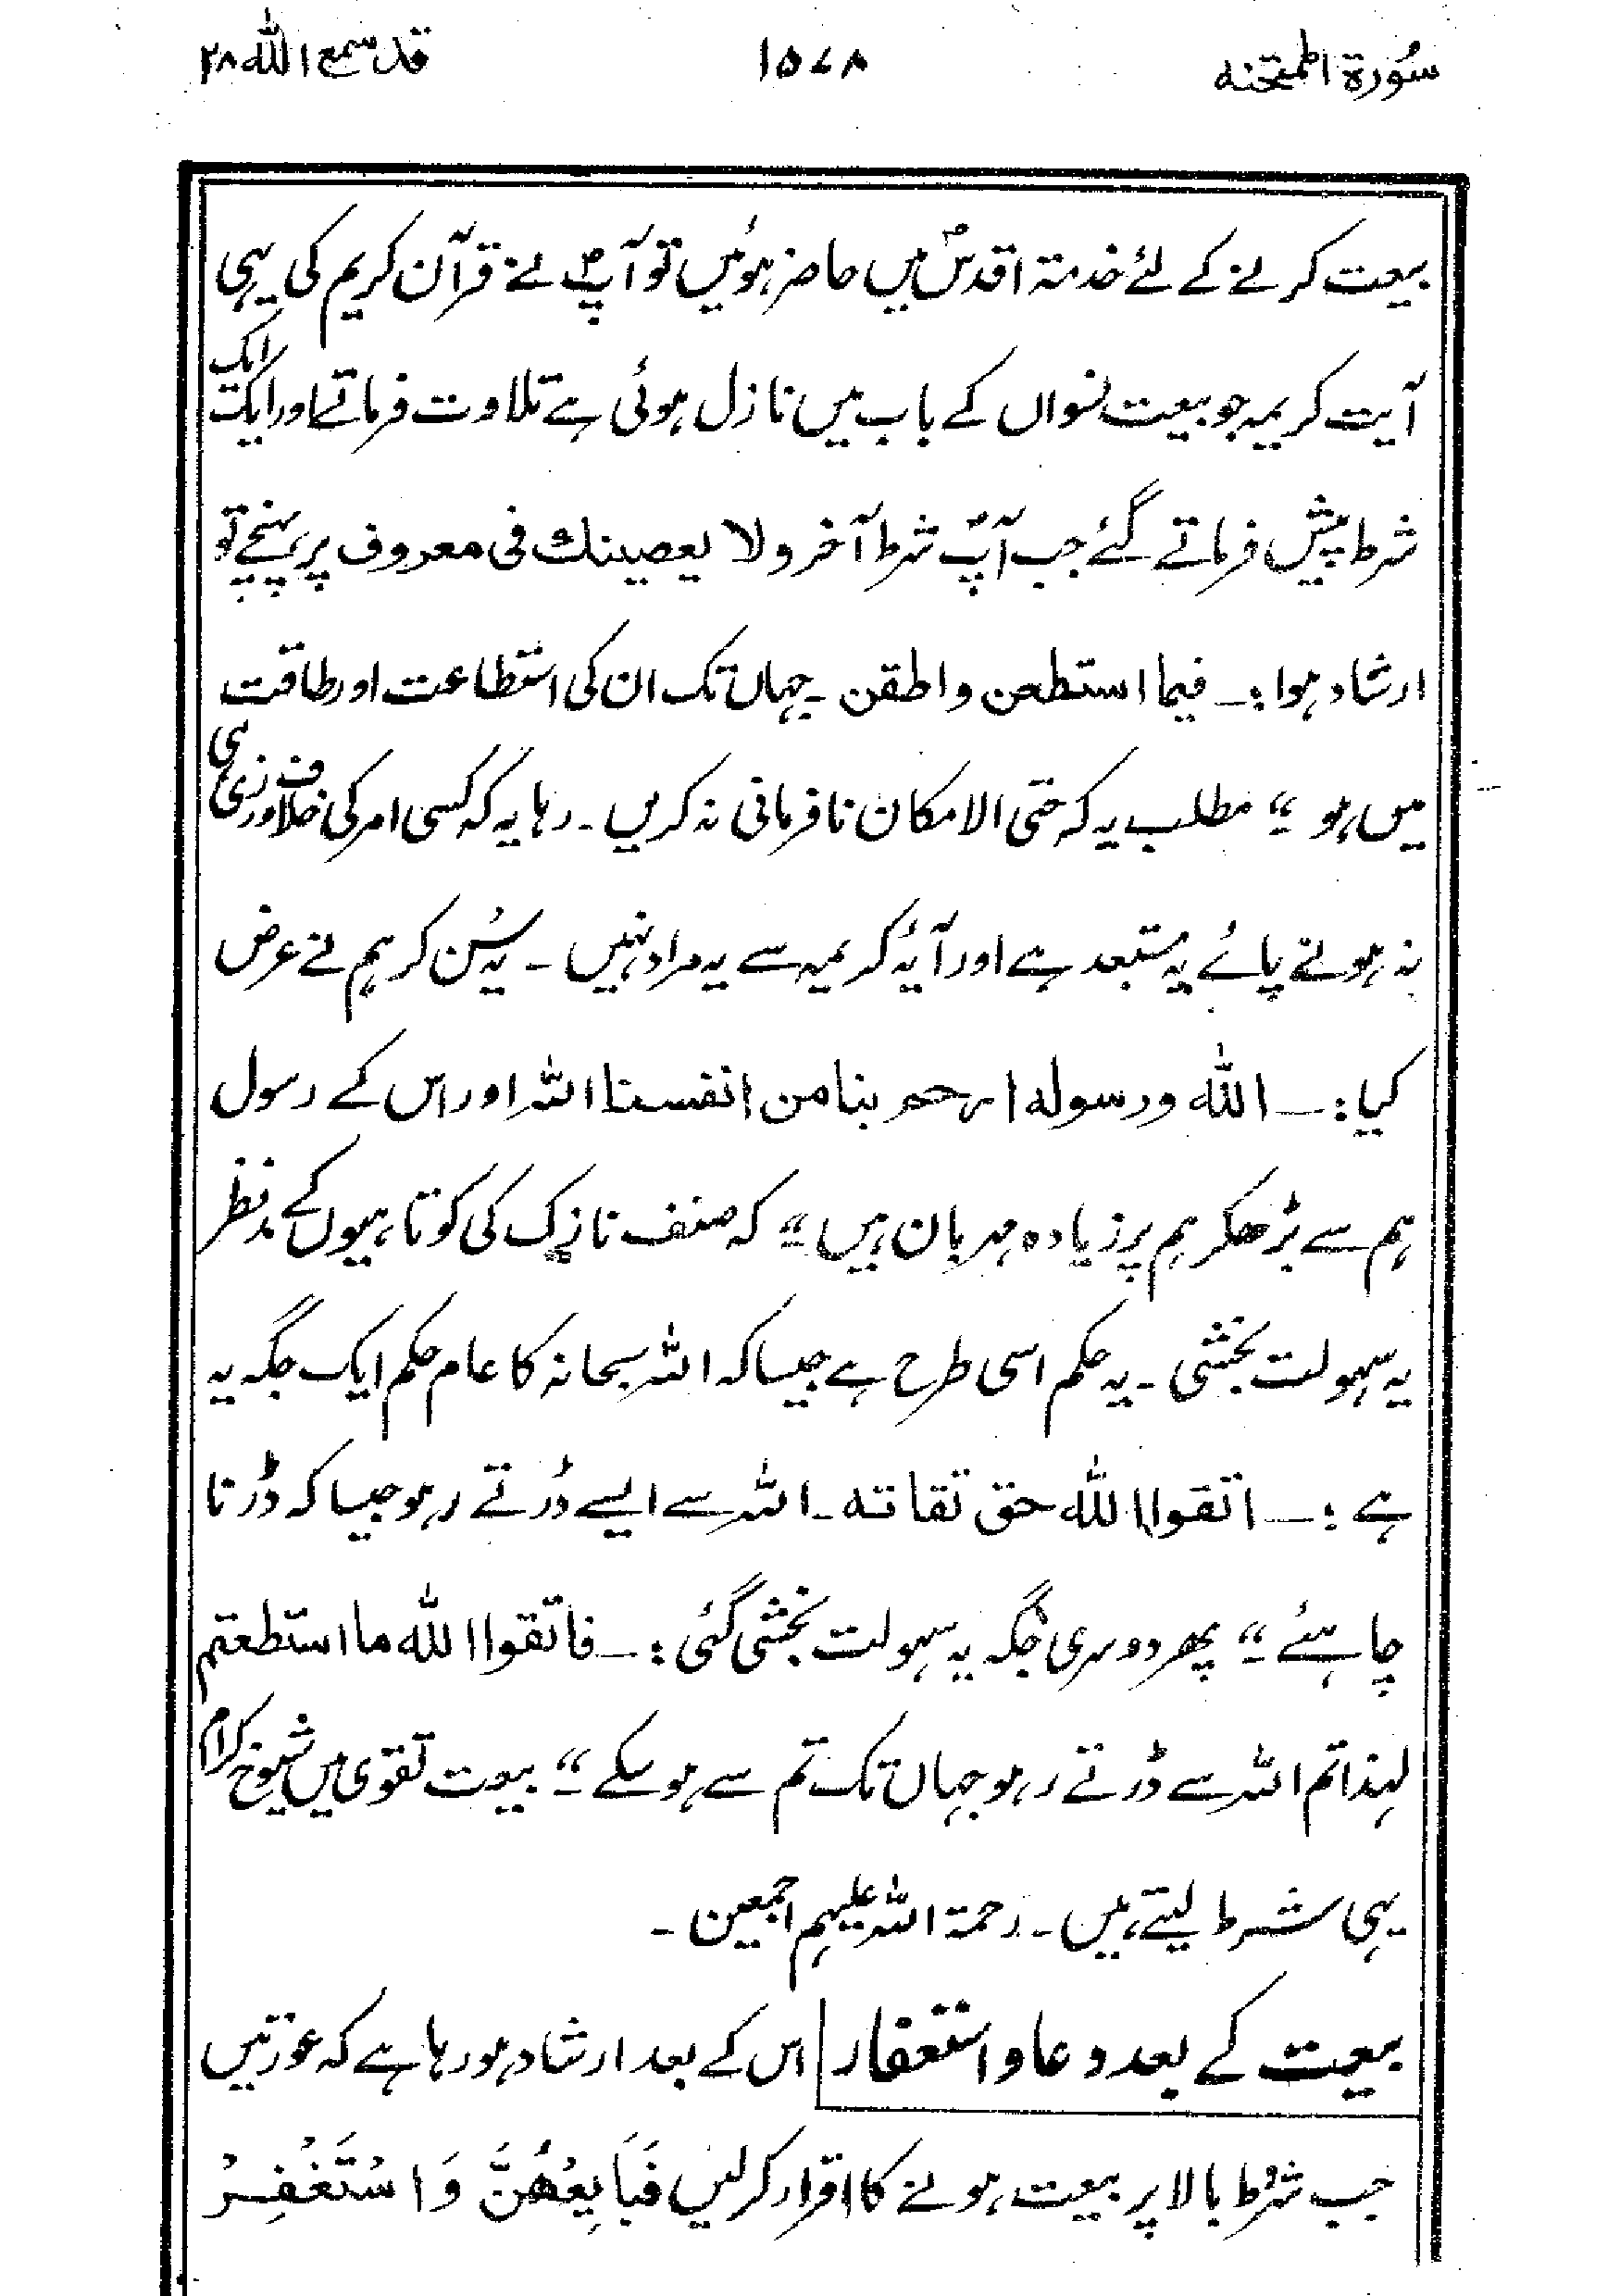 سُورة الممتحنه ۱۵۷۸ قد سمع الله ۲۸
بیعت کرنے کے لئے خدمۃ اقدسؐ میں حاضر ہوئیں تو آپؐ نے قرآن کریم کی یہی
آیت کریمہ جو بیعت نسواں کے باب میں نازل ہوئی ہے تلاوت فرماتے اور ایک ایک
شرط پیش فرماتے گئے جب آپؐ شرط آخر ولا یعصینك فی معروف پر پہنچے تو
ارشاد ہوا :۔ فیما استطعن واطقن ۔ جہاں تک ان کی استطاعت اور طاقت
میں ہو ‘‘ مطلب یہ کہ حتی الامکان نافرمانی نہ کریں ۔ رہا یہ کہ کسی امر کی خلاف ورزی ہی
نہ ہونے پائے یہ مستبعد ہے اور آیۂ کریمہ سے یہ مراد نہیں ۔ یہ سُن کر ہم نے عرض
کیا :۔ الله ورسوله ارحم بنا من انفسنا اللہ اور اس کے رسول
ہم سے بڑھکر ہم پر زیادہ مہربان ہیں ‘‘ کہ صنف نازک کی کوتاہیوں کے مدنظر
یہ سہولت بخشی ۔ یہ حکم اسی طرح ہے جیسا کہ اللہ سبحانہ کا عام حکم ایک جگہ یہ
ہے :۔ اتقوا الله حق تقاته ۔ اللہ سے ایسے ڈرتے رہو جیسا کہ ڈرنا
چاہئے ‘‘ پھر دوسری جگہ یہ سہولت بخشی گئی :۔ فاتقوا الله ما استطعتم
لہذا تم اللہ سے ڈرتے رہو جہاں تک تم سے ہو سکے ‘‘ بیعت تقوی میں شیوخ کرام
یہی شرط لیتے ہیں ۔ رحمۃ اللہ علیہم اجمعین ۔
بیعت کے بعد دعا و استغفار اس کے بعد ارشاد ہو رہا ہے کہ عورتیں
جب شرُط بالا پر بیعت ہونے کا اقرار کر لیں فَبَايِعْهُنَّ وَاسْتَغْفِرْ